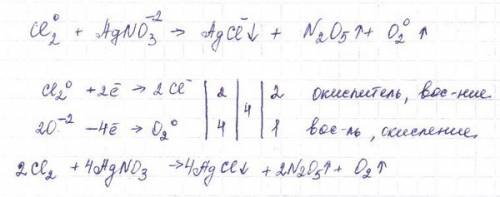 Cl₂⁰ + AgNO₃⁻² → AgCl⁻↓ + N₂O₅↑ + O₂⁰↑
Cl₂⁰ + 2ē → 2Cl⁻ | 2 | 4 | 2 окислитель, вос-ние
2O⁻² − 4ē → O₂⁰ | 4 | | 1 вос-ль, окисление
2Cl₂ + 4AgNO₃ → 4AgCl↓ + 2N₂O₅↑ + O₂↑